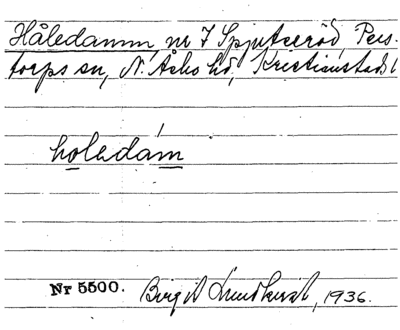 Håledamm, nr 7 Spjutseröd, Pers-
torps sn, N. Åsbo hd, Kristianstads l
holedám
Nr 5500. Birgit Lundkvist, 1936.